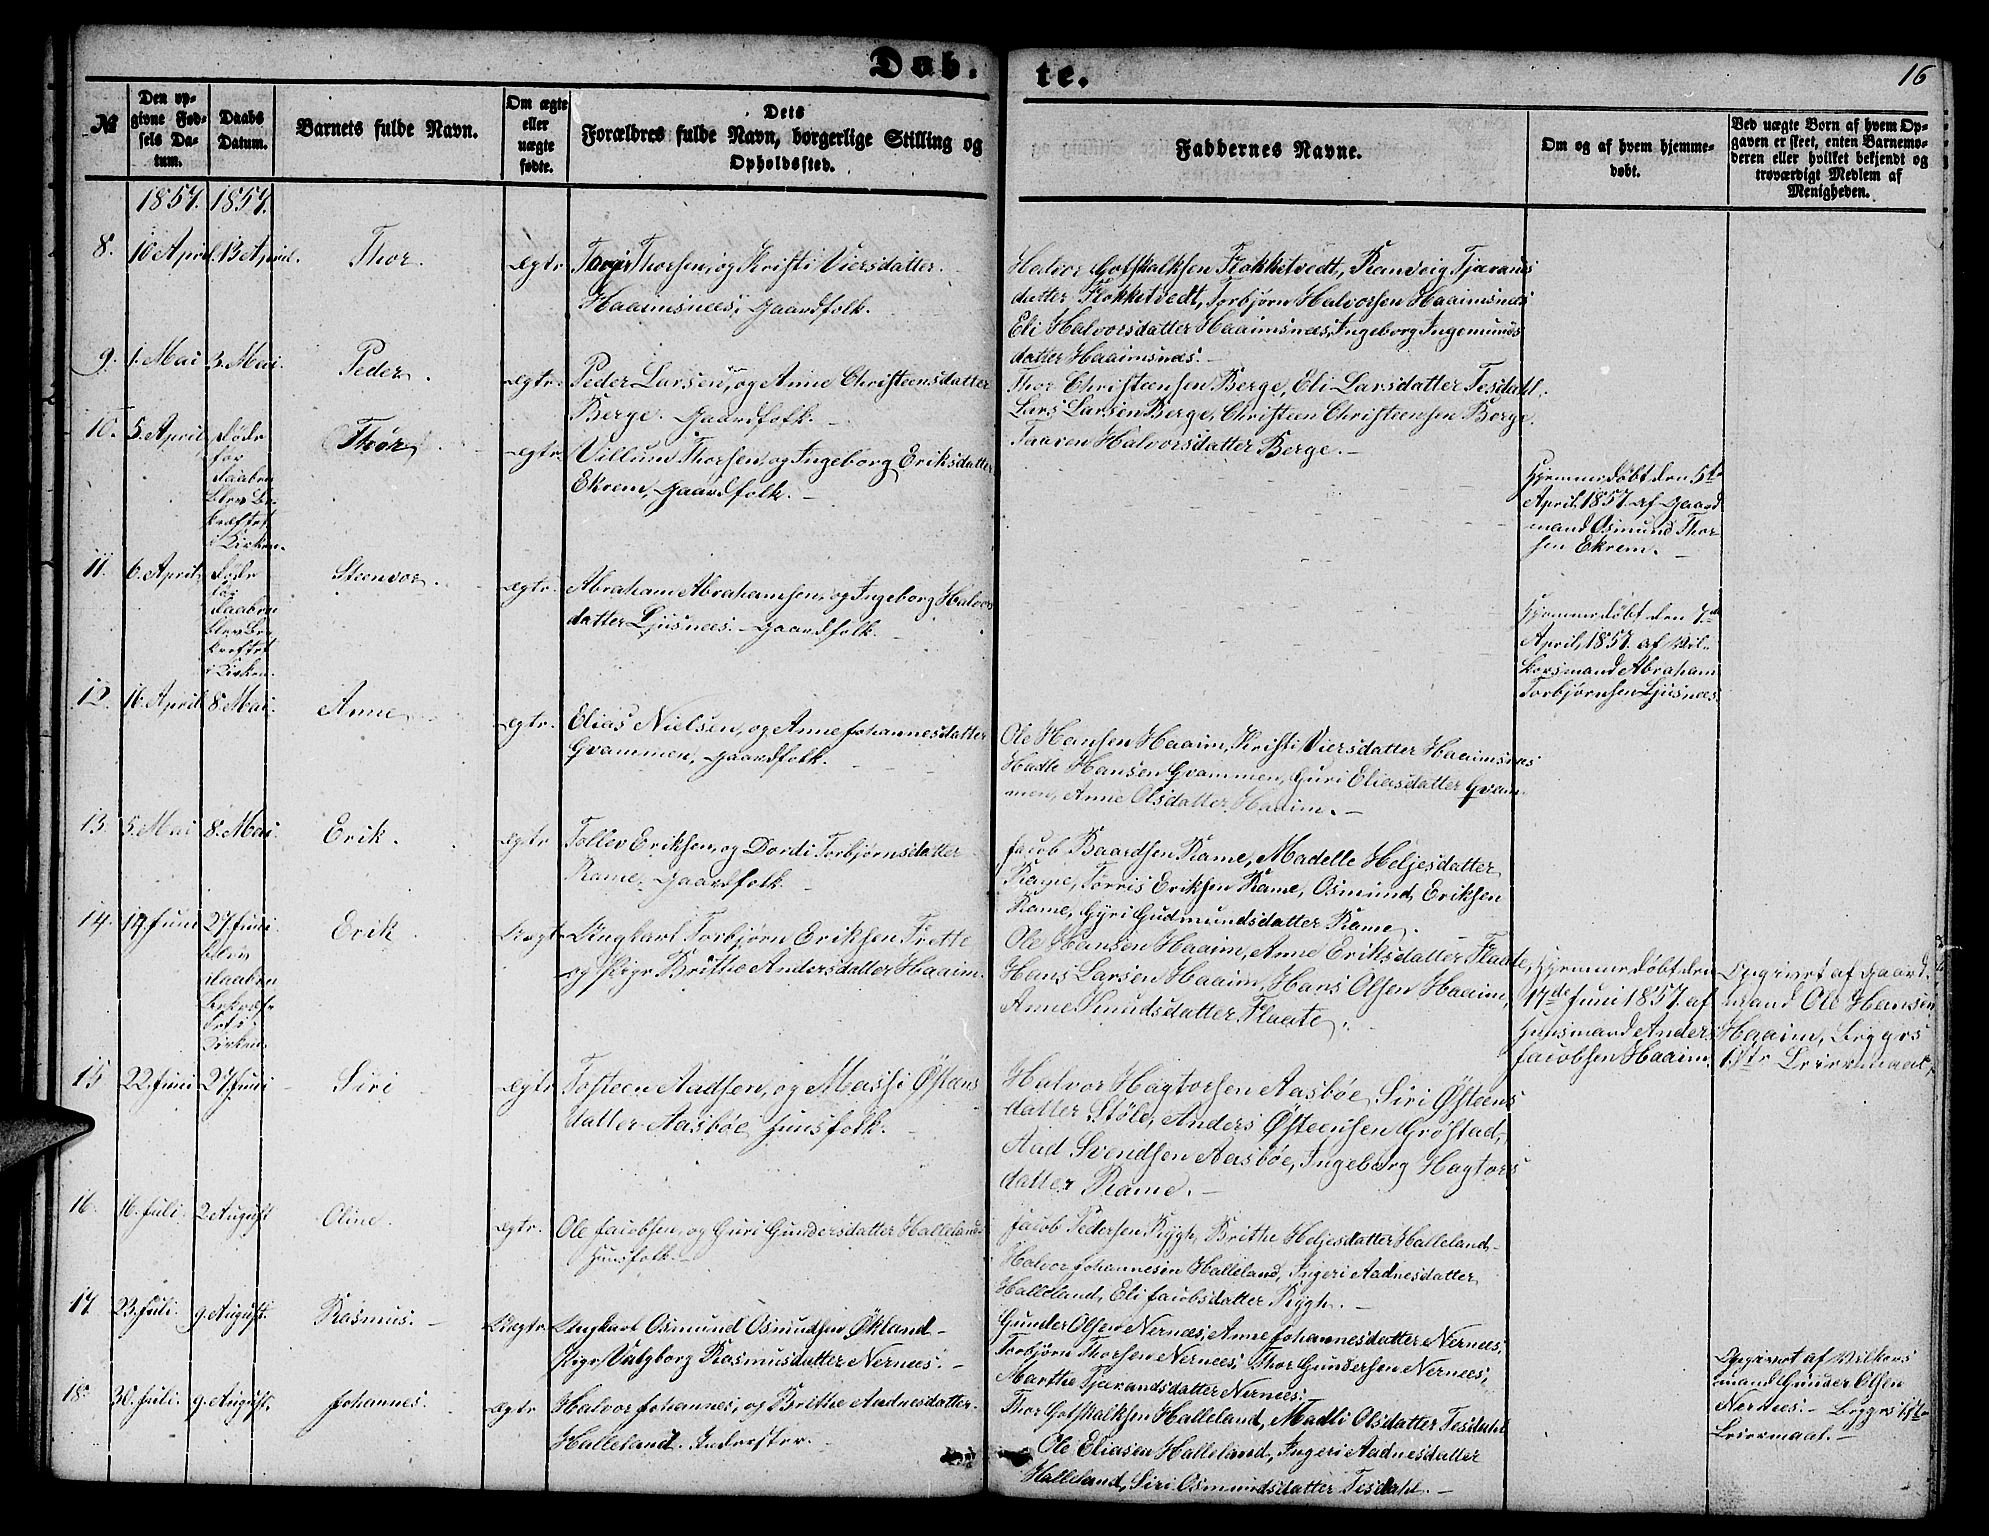 Døb-
te.
16
№
Den op-
givne Fød-
sels Da-
tum.
Daabs
Datum.
Barnets fulde Navn.
Om ægte
eller
uægte
fødte.
Dets
Forældres fulde Navn, borgerlige Stilling og
Opholdssted.
Faddernes Navne.
Om og af hvem hjemme-
døbt.
Ved uægte Børn af hvem Op-
gaven er skeet, enten Barnemo-
deren eller hvilket bekjendt og
troværdigt Medlem af
Menigheden.
1857. 1857.
8. 10 April. 13 April. Thor. Ægte Thorsen, og Kristi Viersdatter
Haaimsnæs, Gaardfolk.
Halvor Gotskalksen Flokketvedt, Ranveig Tjerans
datter Flokketvedt, Torbjørn Halvorsen Haaimsnæs
Eli Halvorsdatter Haaimsnæs, Ingeborg Ingemunds
datter Haaimsnæs.
9. 1. Mai 3. Mai. Peder. Ægte. Peder Larsen, og Anne Christensdatter
Berge. Gaardfolk.
Thor Christensen Berge, Eli Larsdatter Tesdahl,
Lars Larsen Berge, Christen Christensen Berge.
Taaren Halvorsdatter Berge.
10. 5. April, døde
før
daaben
blev be-
kræftet
i Kirken.
Thor. Ægte Villum Thorsen, og Ingeborg Eriksdatter
Ekrem, Gaardfolk.
Hjemmedøbt den 5te
April, 1857. af Gaard
mand Osmund Thor
sen Ekrem.
11. 6. April, døde
før
daaben
blev be-
kræftet
i Kirken.
Steenvor. Ægte. Abraham Abrahamsen, og Ingeborg Halvors
datter Ljusnæs. Gaardfolk.
Hjemmedøbt den 7de
April, 1857. af Vil-
korsmand Abraham
Torbjørnsen Ljusnæs
12. 16. April 8. Mai. Anne Ægte. Elias Nielsen, og Anne Johannesdatter
Gvammen, Gaardfolk.
Ole Hansen Haaim, Kristi Viersdatter Haaimsnæs
Hadle Hansen Gvammen, Guri Eliasdatter Gvam-
men, Anne Olsdatter Haaim.
13. 5. Mai 8. Mai. Erik. Ægte Tollev Eriksen, og Dordi Torbjørnsdatter
Rame, Gaardfolk.
Jacob Baardsen Rame, Madelle Heljesdatter
Rame, Torris Eriksen Rame, Osmund Eriksen
Rame, Gyri Gudmundsdatter Rame.
14. 14. Juni 27. Juni
blev
daaben
bekræf-
tet i
Kirken.
Erik Uægte Ungkarl Torbjørn Eriksen Frette
og Pige Brithe Andersdatter Haaim.
Ole Hansen Haaim, Anne Eriksdatter Flaate,
Hans Larsen Haaim, Hans Olsen Haaim,
Anne Knudsdatter Flaate.
Hjemmedøbt den
17de Juni 1857. af
Huusmand Anders
Jacobsen Haaim.
Opgivet af Gaard
mand Ole Hansen
Haaim, Begges
1ste Leiermaal.
15 22. Juni 27. Juni Siri Ægte Tosteen Aadsen, og Massi Østens
datter Aasbøe, Huusfolk.
Halvor Hagtorsen Aasbøe, Siri Østeens
datter Støle, Anders Østeensen Grøstad,
Aad Svendsen Aasbøe, Ingeborg Hagtors
datter Rame.
16. 16. Juli. 2 August Oline. Ægte. Ole Jacobsen, og Guri Gundersdatter Halleland
Huusfolk.
Jacob Pedersen Rygh, Brithe Heljesdatter Halleland
Halvor Johannesen Halleland, Ingeri Aadnesdatter
Halleland, Eli Jacobsdatter Rygh.
17 23. Juli. 9. August. Rasmus. Uægte Ungkarl Osmund Osmundsen Økland
Pige Valgborg Rasmusdatter Nernæs.
Gunder Olsen Nernæs, Anne Johannesdatter Nernæs,
Torbjørn Thorsen Nernæs, Thor Gundersen Nernæs,
Marthe Tjerandsdatter Nernæs.
Opgivet af Vilkors
mand Gunder Olsen
Nernæs. Begges 1ste
Leiermaal.
18. 30. Juli. 9. August. Johannes. Ægte Halvor Johannes, og Brithe Aadnesdatter
Halleland. Inderster.
Thor Gotskalksen Halleland, Madli Olsdatter Tesdahl
Ole Eliasen Halleland, Ingeri Aadnesdatter
Halleland, Siri Osmundsdatter Tesdahl.